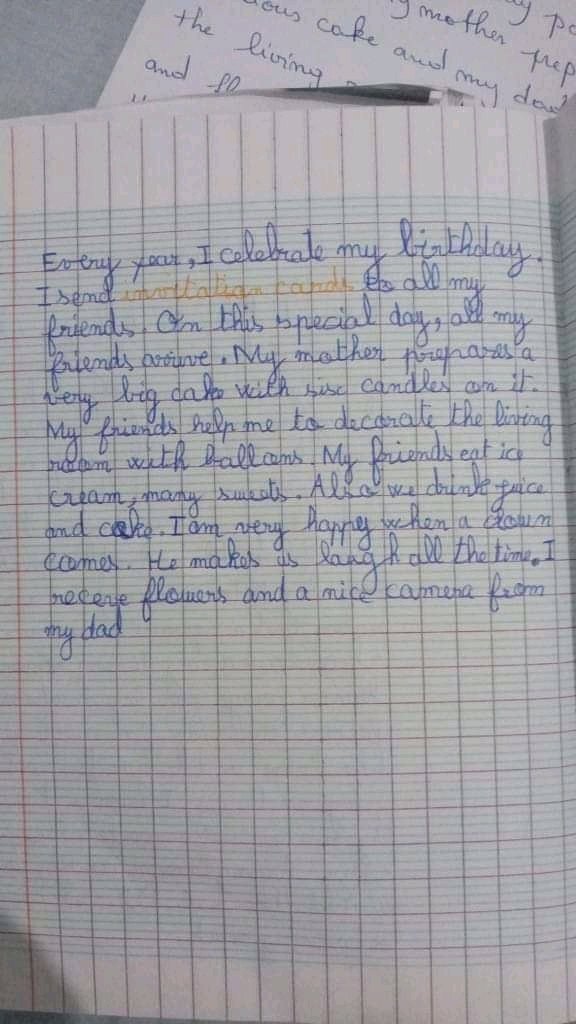 mother prep
ous cake and my dad
the living
and
Every year, I celebrate my birthday.
I send invitation cards to all my
friends. On this special day, all my
friends arrive. My mother prepares a
very big cake with six candles on it.
My friends help me to decorate the living
room with balloons. My friends eat ice
cream, many sweets. Also we drink juice
and coke. I am very happy when a clown
comes. He makes us laugh all the time. I
receve flowers and a nice camera from
my dad